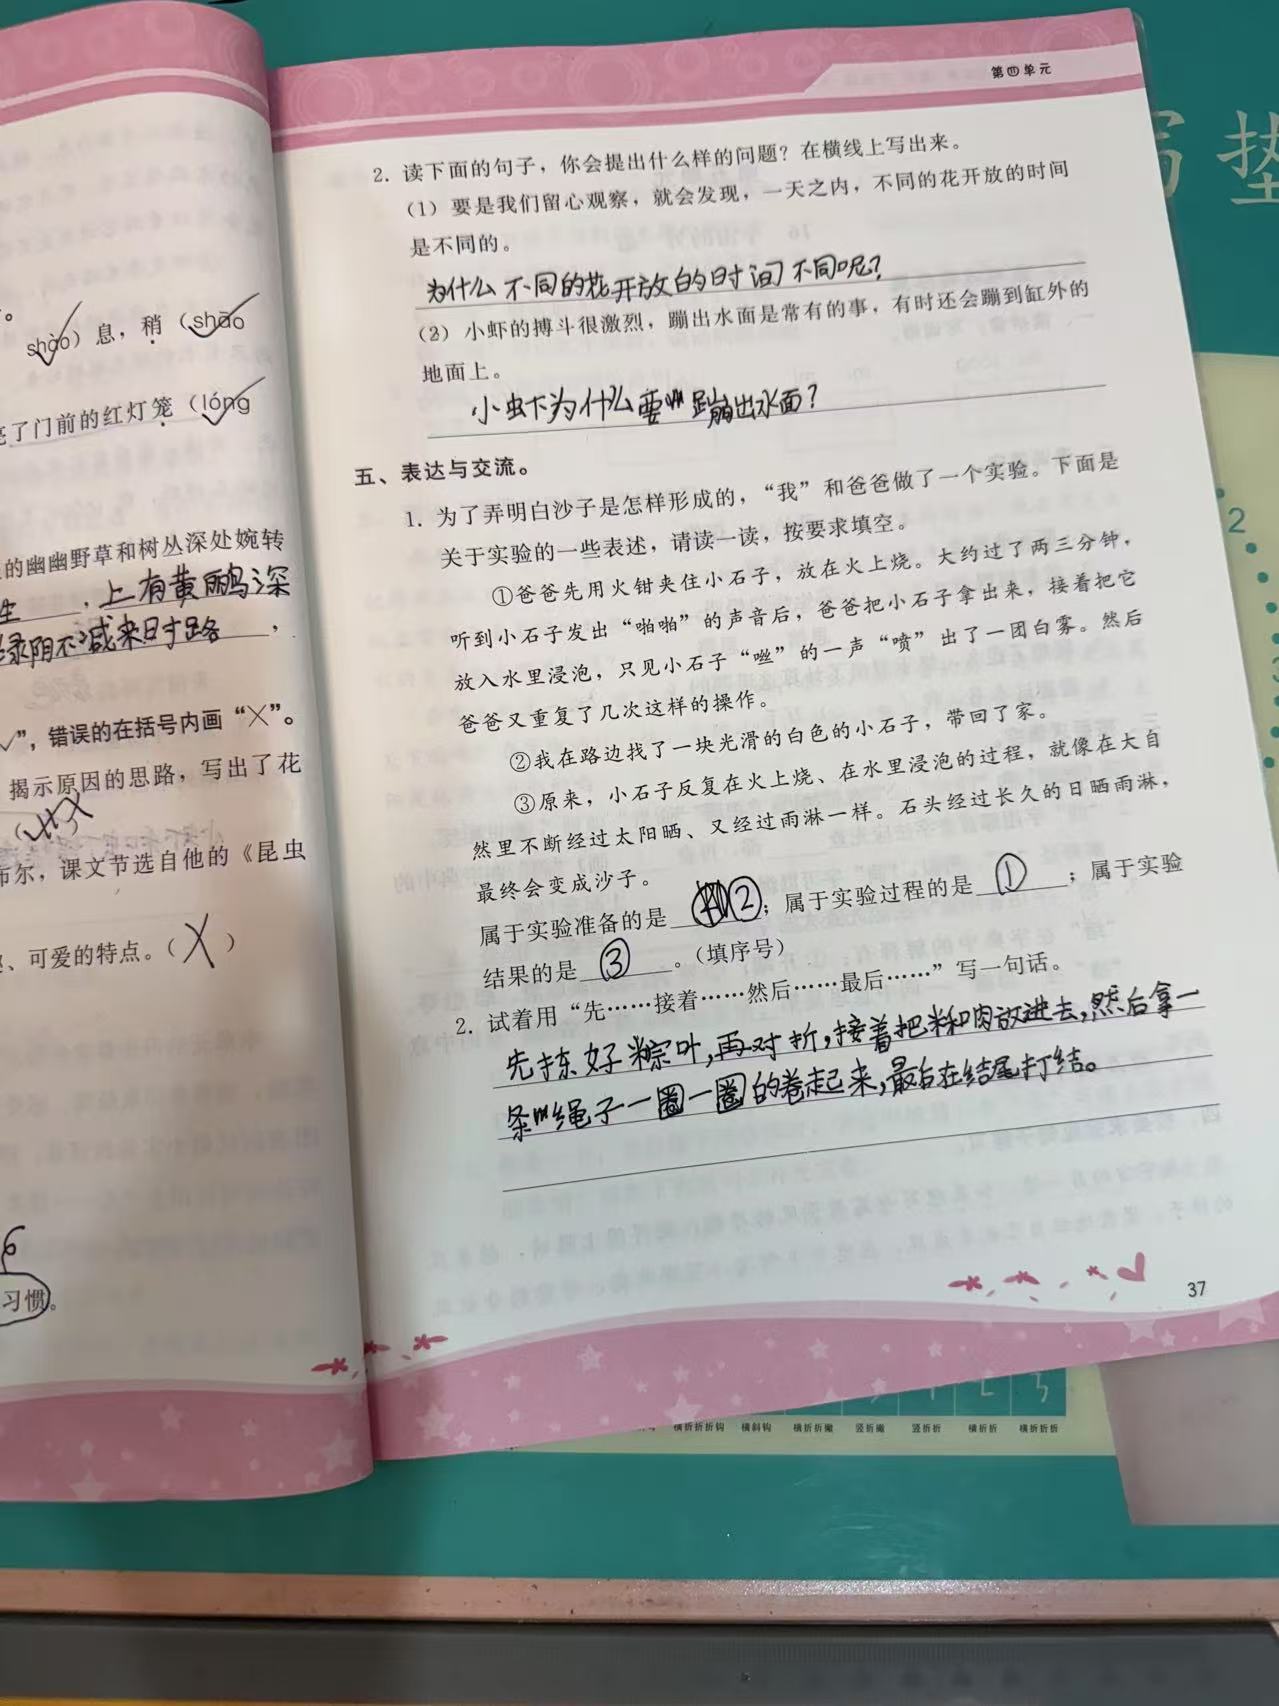 。
shào）息，稍（shāo
亮了门前的红灯笼（lóng
的幽幽野草和树丛深处婉转
生，上有黄鹂深
绿阴不减来时路，
√”，错误的在括号内画“×”。
揭示原因的思路，写出了花
布尔，课文节选自他的《昆虫
、可爱的特点。（X）
6
习惯。
第四单元
2. 读下面的句子，你会提出什么样的问题？在横线上写出来。
（1）要是我们留心观察，就会发现，一天之内，不同的花开放的时间
是不同的。
为什么不同的花开放的时间不同呢？
（2）小虾的搏斗很激烈，蹦出水面是常有的事，有时还会蹦到缸外的
地面上。
小虾为什么要蹦出水面？
五、表达与交流。
1. 为了弄明白沙子是怎样形成的，“我”和爸爸做了一个实验。下面是
关于实验的一些表述，请读一读，按要求填空。
①爸爸先用火钳夹住小石子，放在火上烧。大约过了两三分钟，
听到小石子发出“啪啪”的声音后，爸爸把小石子拿出来，接着把它
放入水里浸泡，只见小石子“咝”的一声“喷”出了一团白雾。然后
爸爸又重复了几次这样的操作。
②我在路边找了一块光滑的白色的小石子，带回了家。
③原来，小石子反复在火上烧、在水里浸泡的过程，就像在大自
然里不断经过太阳晒、又经过雨淋一样。石头经过长久的日晒雨淋，
最终会变成沙子。
属于实验准备的是②；属于实验过程的是①；属于实验
结果的是③。（填序号）
2. 试着用“先……接着……然后……最后……”写一句话。
先拣好粽叶，再对折，接着把米和肉放进去，然后拿一
条绳子一圈一圈的卷起来，最后在结尾打结。
37
写垫
2
3
横折折折钩 横斜钩 横折折撇 竖折撇 竖折折 横折折 横折折折